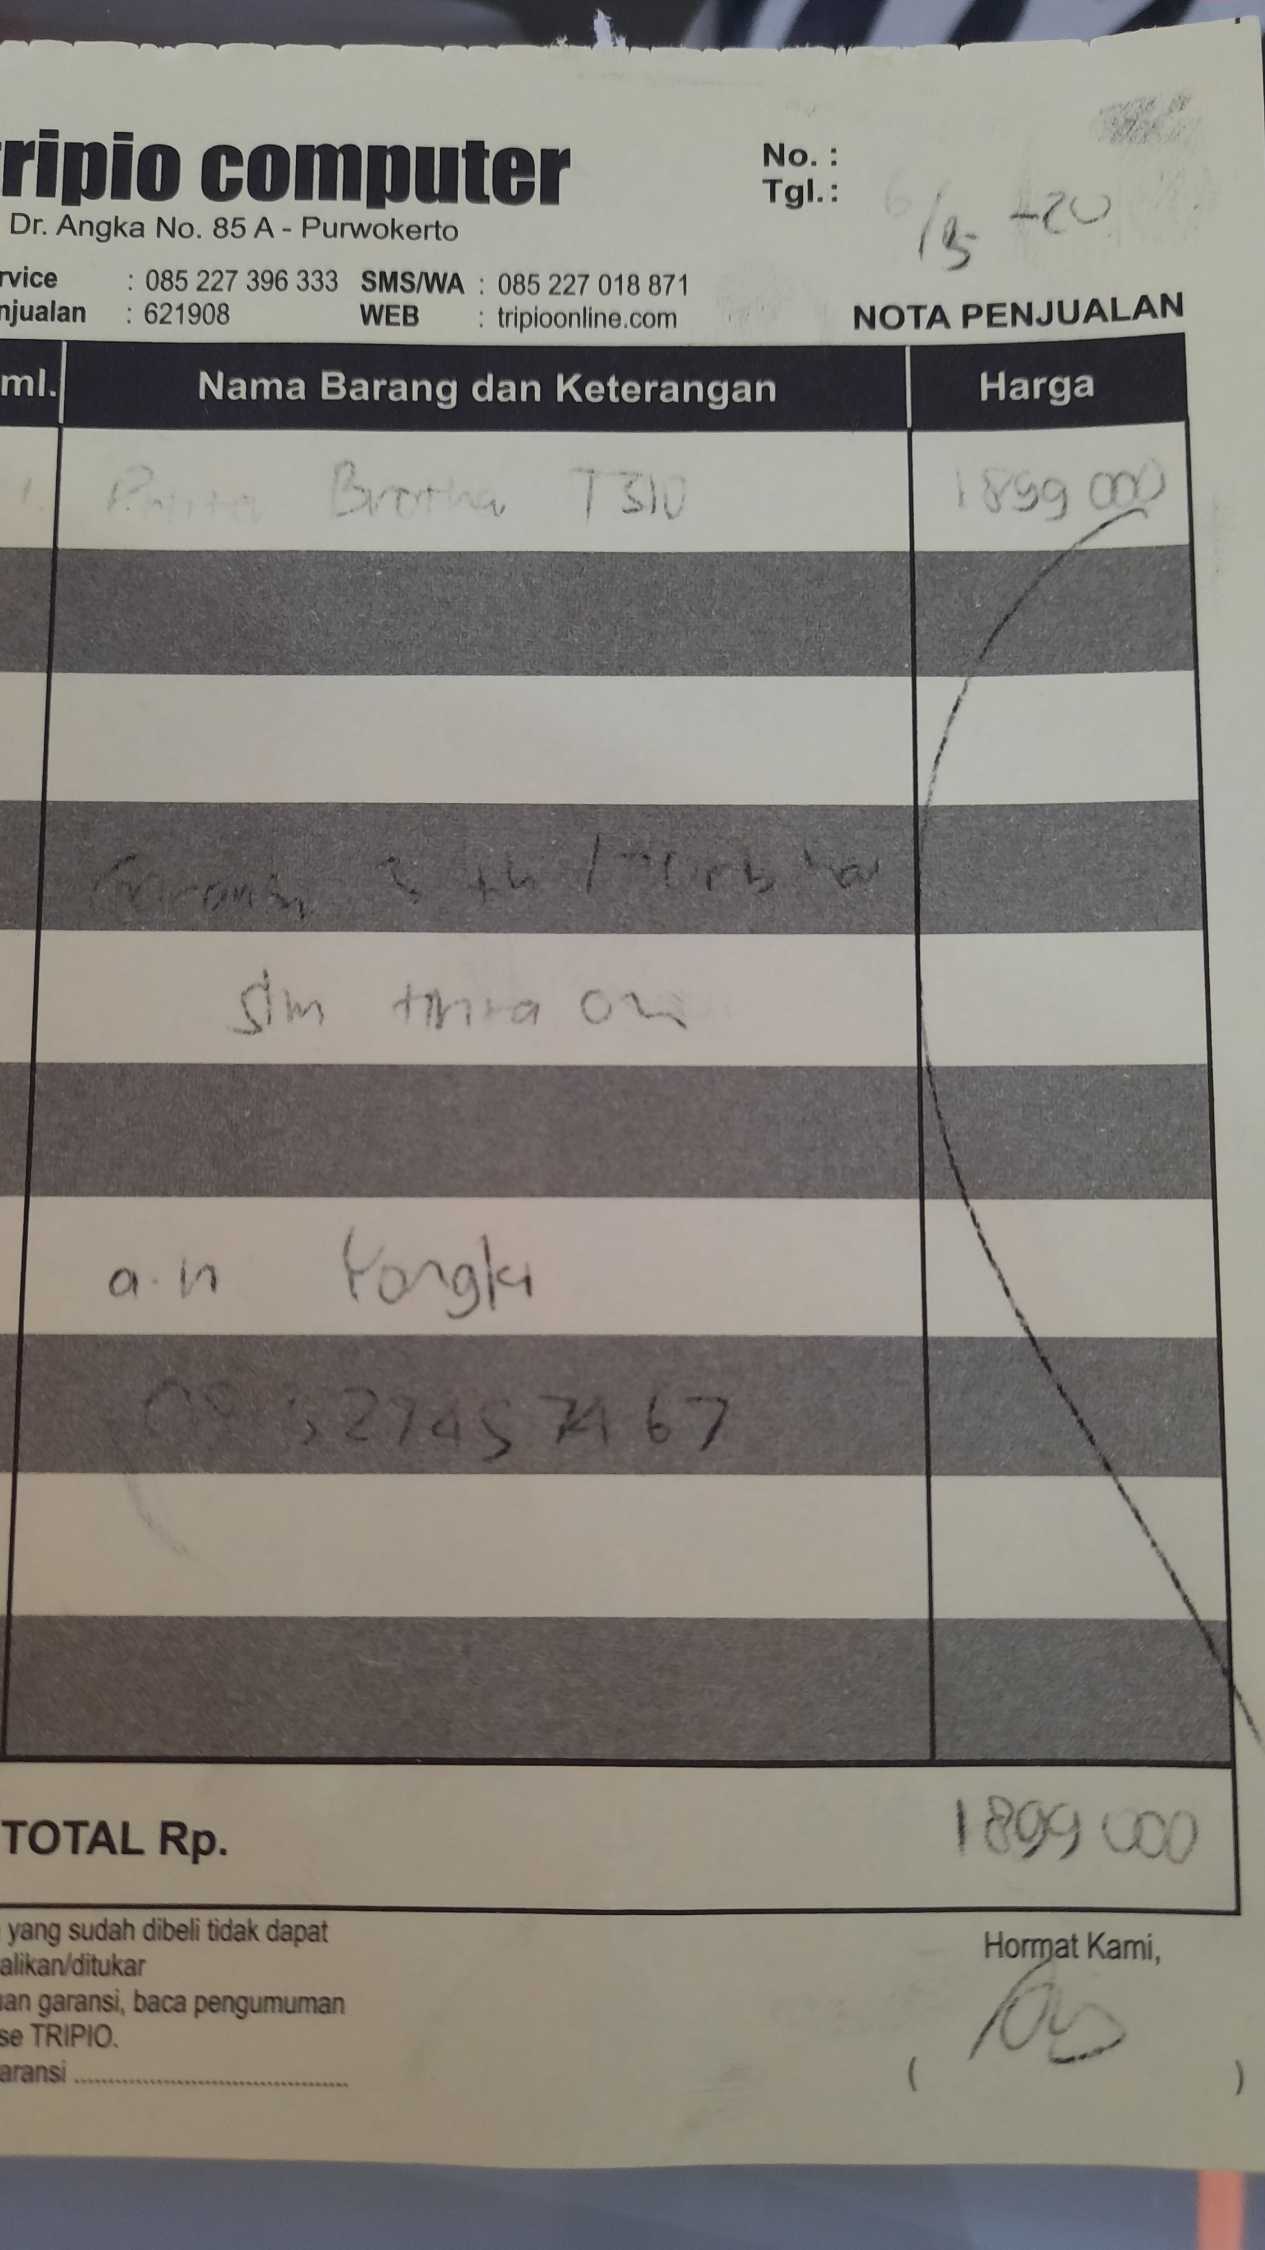 tripio computer
Dr. Angka No. 85 A - Purwokerto
No. :
Tgl. : 6/5 -20
rvice : 085 227 396 333 SMS/WA : 085 227 018 871
njualan : 621908 WEB : tripioonline.com
NOTA PENJUALAN
ml. Nama Barang dan Keterangan Harga
1. Brother T310 1899 000
3 th /
a.n Yongki
TOTAL Rp. 1899 000
yang sudah dibeli tidak dapat
alikan/ditukar
uan garansi, baca pengumuman
se TRIPIO.
aransi ..........
Hormat Kami,
( )